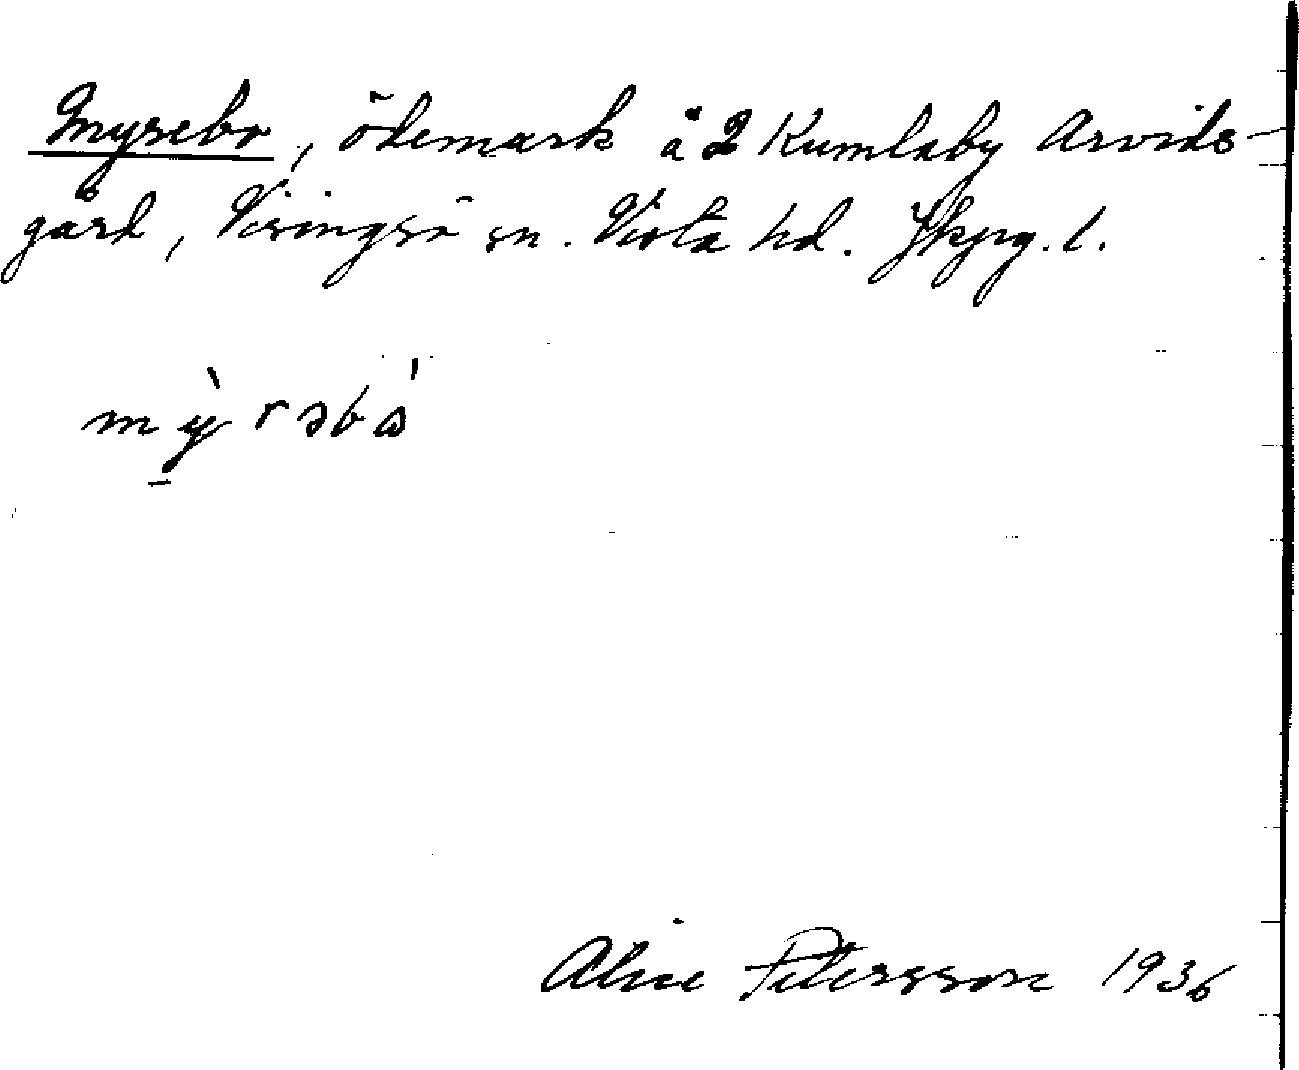 Myrebo, ödemark å 2 Kumlaby Arvids-
gård, Visingsö sn. Vista hd. Jkpg. l.
mỳrəbå
Alice Petersson 1936